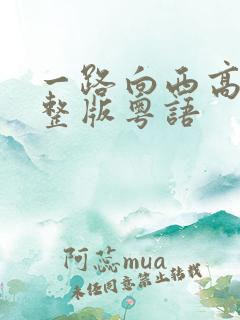 一路向西高
整版粤語
阿蕊mua
未经同意禁止转载